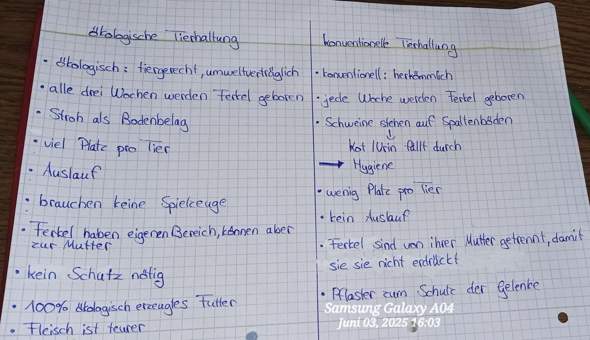 ökologische Tierhaltung
• ökologisch: tiergerecht, umweltverträglich
• alle drei Wochen werden Ferkel geboren
• Stroh als Bodenbelag
• viel Platz pro Tier
• Auslauf
• brauchen keine Spielzeuge
• Ferkel haben eigenen Bereich, können aber
zur Mutter
• kein Schutz nötig
• 100% ökologisch erzeugtes Futter
• Fleisch ist teurer
konventionelle Tierhaltung
• konventionell: herkömmlich
• jede Woche werden Ferkel geboren
• Schweine stehen auf Spaltenböden
↓
Kot/Urin fällt durch
→ Hygiene
• wenig Platz pro Tier
• kein Auslauf
• Ferkel sind von ihrer Mutter getrennt, damit
sie sie nicht erdrückt
• Pflaster zum Schutz der Gelenke
Samsung Galaxy A04
Juni 03, 2025 16:03